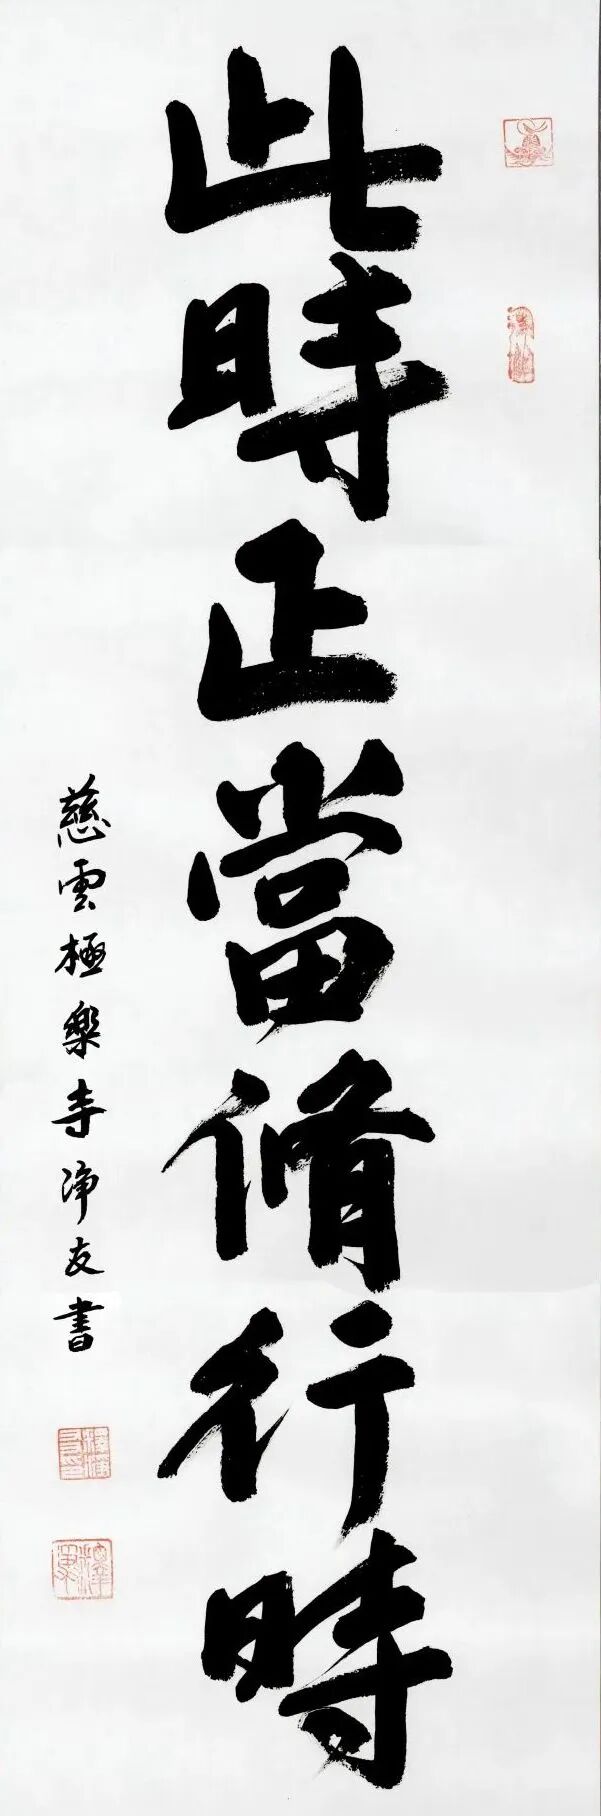 此時正當脩行時
慈雲極樂寺淨友書